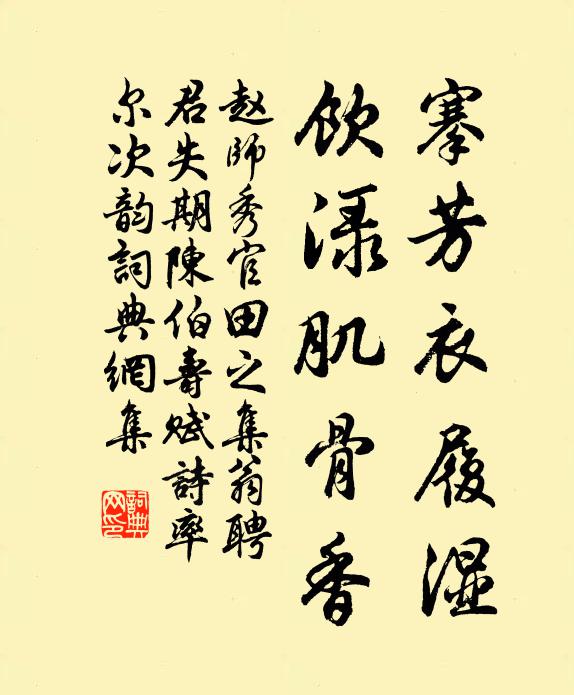 搴芳衣履湿
饮渌肌骨香
赵师秀官田之集翁聘
君失期陳伯壽赋詩率
尔次韵詞典網集
詞典
网印